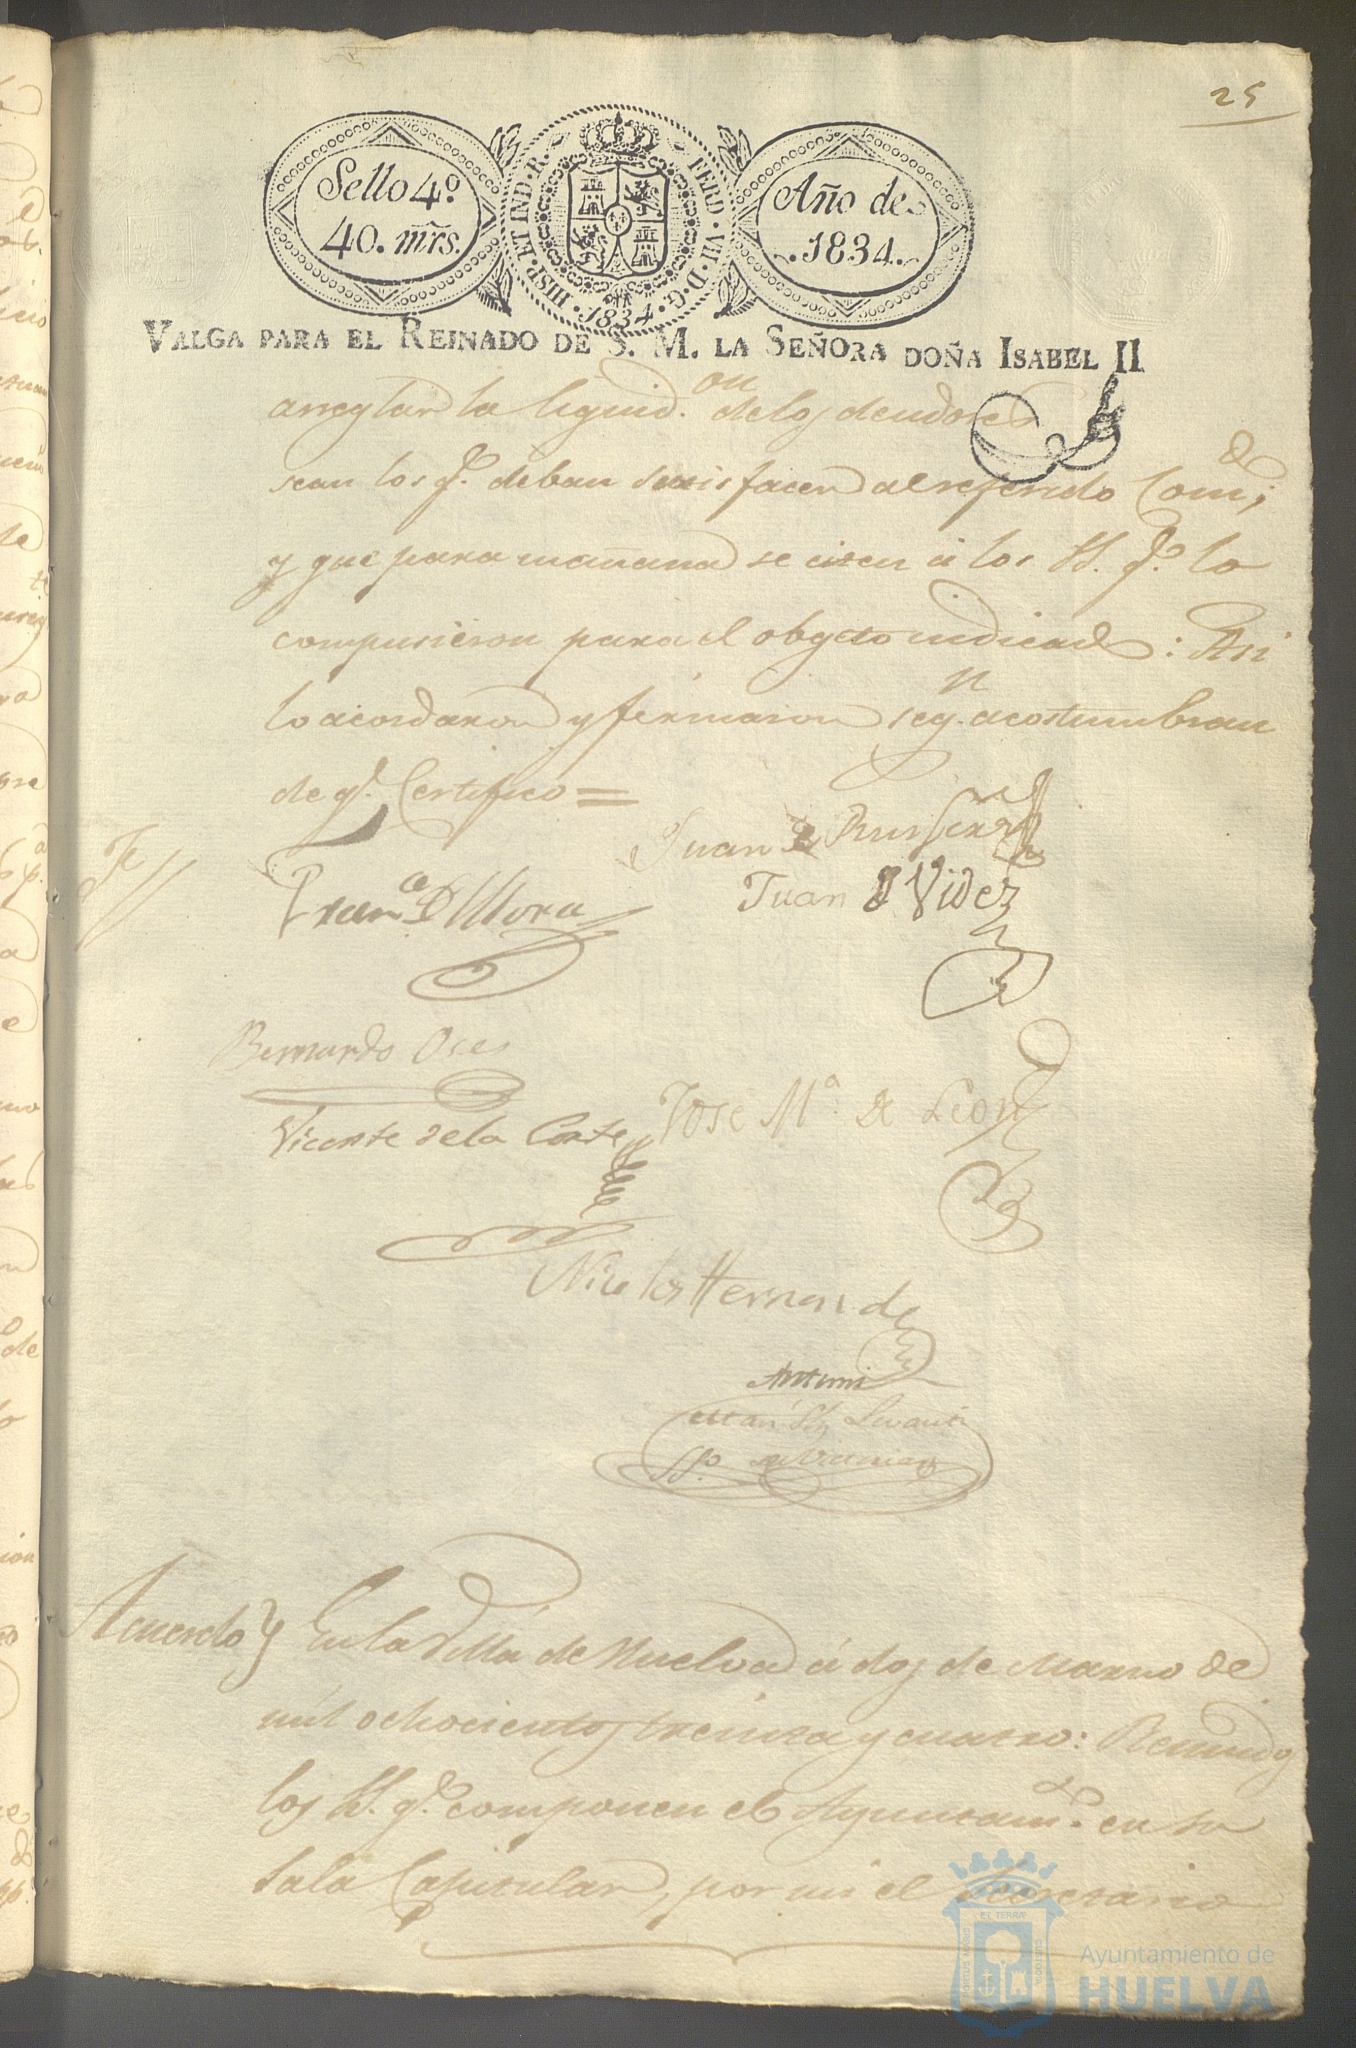 25
Sello 4º
40. mr̃s.
HISP. ET IND. R. FERD. VII. D. G. 1834.
Año de
1834.
VALGA PARA EL REINADO DE S. M. LA SEÑORA DOÑA ISABEL II
arreglar la liquid.on de los deudores
sean los q.e deban satisfacer al referido Com.do;
y que para mañana se citen á los SS. q.e lo
compusieron para el obgeto indicado: Asi
lo acordaron y firmaron seg.n acostumbran
de q.e Certifico=
Juan
Fran.co D Mora
Juan J Videz
Bernardo Oses
Vicente de la Corte
José M.a de Leon
Nicolas Hernandez
Antemi
SS.o
Acuerdo } En la Villa de Huelva á dos de Marzo de
mil ochocientos treinta y cuatro: Reunidos
los SS. q.e componen el Ayuntam.to en su
sala Capitular, por mi el Secretario
Ayuntamiento de
HUELVA